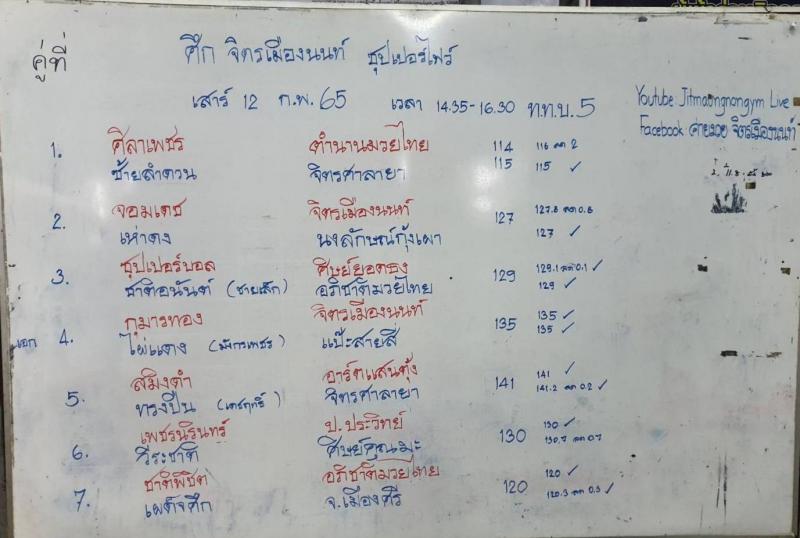 คู่ที่ ศึก จิตรเมืองนนท์ ซุปเปอร์ไฟว์
เสาร์ 12 ก.พ. 65 เวลา 14.35-16.30 ท.ท.บ. 5
Youtube Jitmuangnongym Live
Facebook ค่ายมวย จิตรเมืองนนท์
1. ศิลาเพชร ตำนานมวยไทย 114 116 ลด 2
ซ้ายลำดวน จิตรศาลายา 115 115 ✓
2. จอมเดช จิตรเมืองนนท์ 127 127.8 ลด 0.8
เห่าดง นงลักษณ์กุ้งเผา 127 ✓
3. ซุปเปอร์บอล ศิษย์ยอดธง 129 129.1 ลด 0.1 ✓
ชาติอนันต์ อภิชาติมวยไทย 129 ✓
เอก 4. กุมารทอง จิตรเมืองนนท์ 135 135 ✓
ไผ่แดง (มังกรเพชร) แป๊ะสายสี่ 135 ✓
5. สมิงดำ อาร์ตแสนตุ้ง 141 141 ✓
ทรงปืน (เดชฤทธิ์) จิตรศาลายา 141.2 ลด 0.2 ✓
6. เพชรนิรินทร์ ป.ประวิทย์ 130 130 ✓
วีระชาติ ศิษย์คุณมะ 130.7 ลด 0.7
7. ชาติพิชิต อภิชาติมวยไทย 120 120 ✓
เผด็จศึก จ.เมืองศรี 120.3 ลด 0.3 ✓